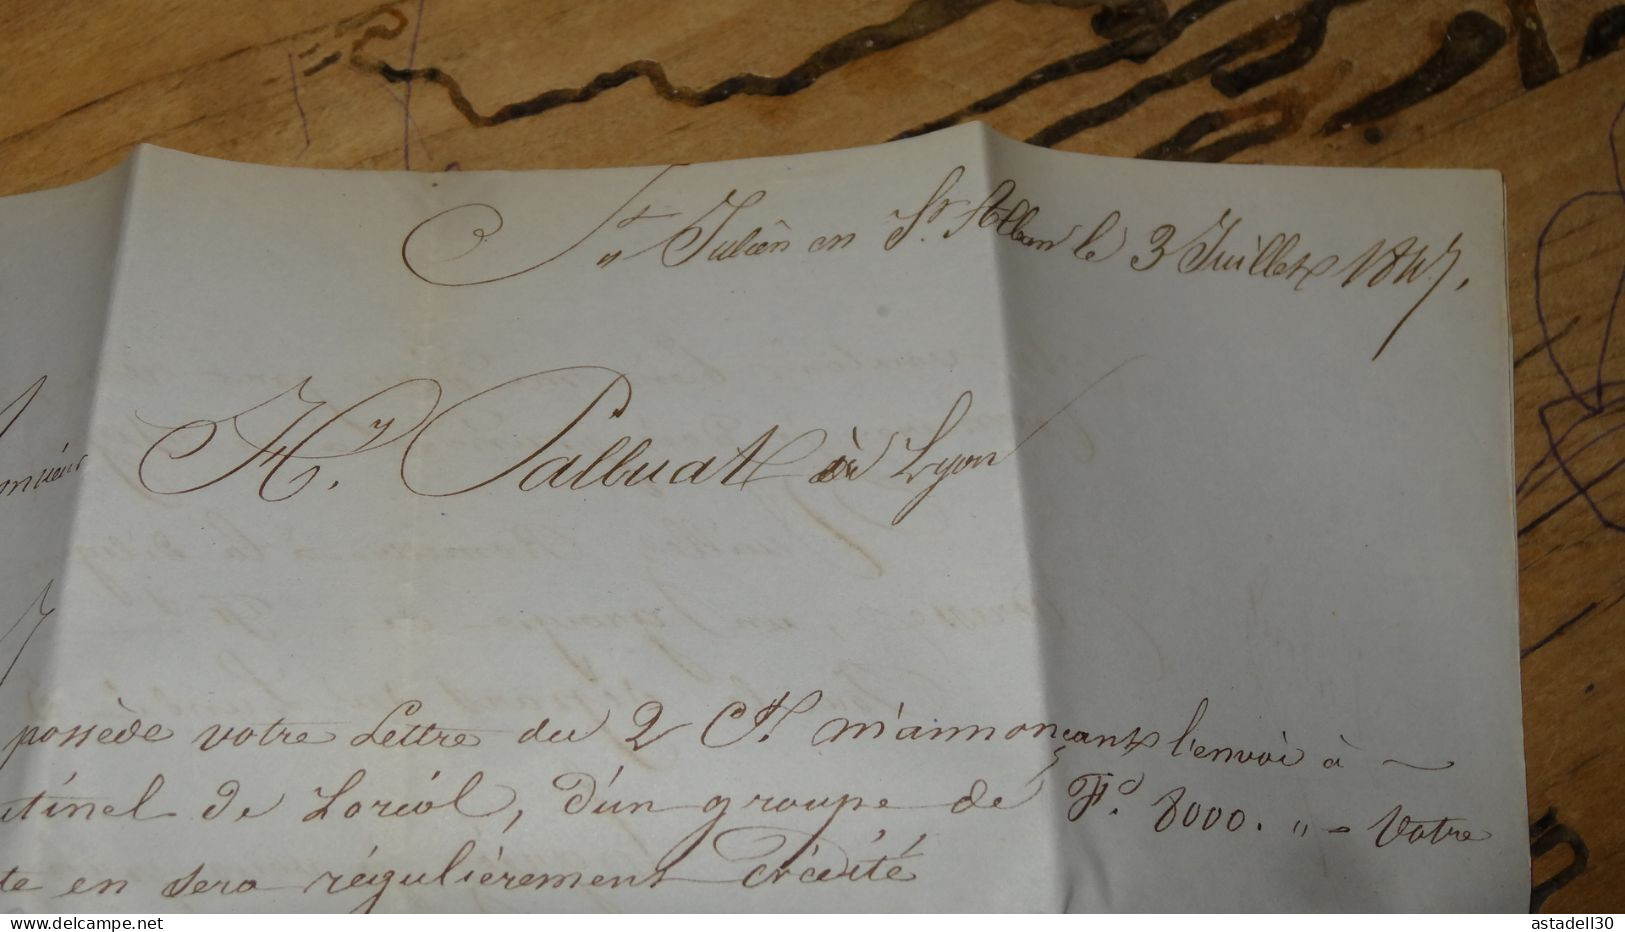 St Julien en St Alban le 3 Juillet 1847.
Monsieur
Hy. Palluat à Lyon
possède votre Lettre du 2 Ct. m'annonçant l'envoi à
de Loriol, d'un groupe de Fd. 8000. " - Votre
te en sera régulièrement crédité
astadell30